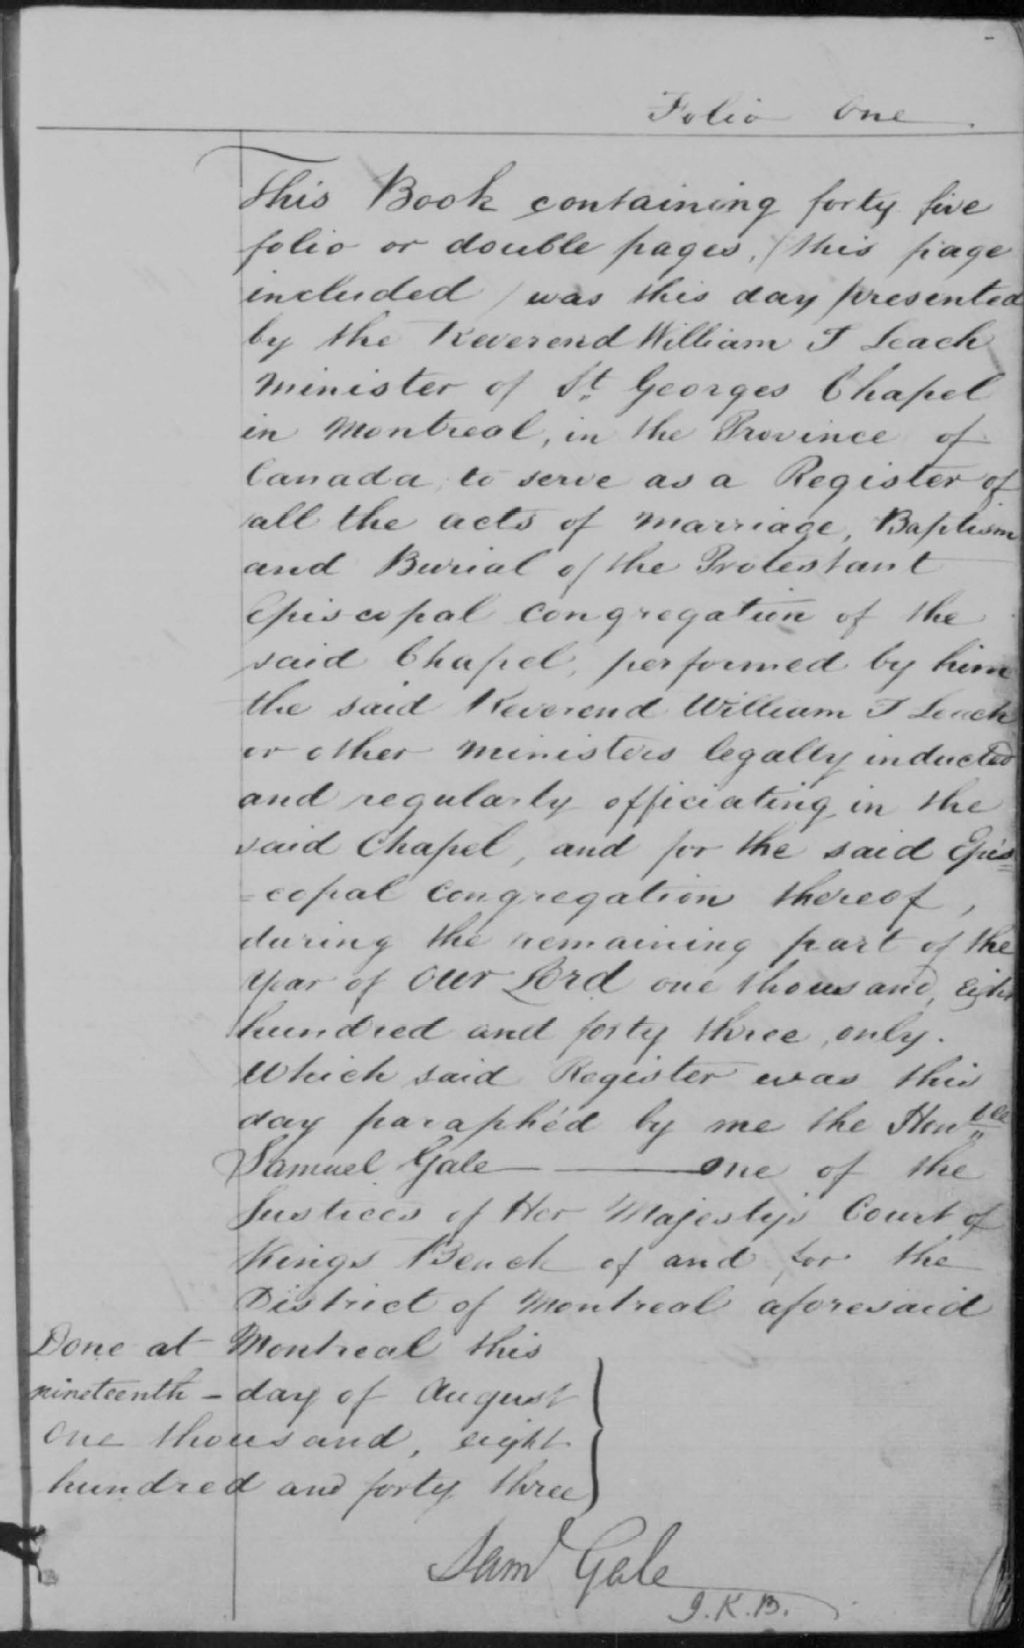 Folio One
This Book containing forty five
folio or double pages, (this page
included) was this day presented
by the Reverend William T Leach
Minister of St Georges Chapel
in Montreal, in the Province of
Canada to serve as a Register of
all the acts of Marriage, Baptism
and Burial of the Protestant
Episcopal Congregation of the
said Chapel, performed by him
the said Reverend William T Leach
or other Ministers legally inducted
and regularly officiating in the
said Chapel, and for the said Epis=
=copal Congregation thereof,
during the remaining part of the
Year of Our Lord one thousand, Eight
hundred and forty three, only.
Which said Register was this
day paraphéd by me the Honble
Samuel Gale — One of the
Justices of Her Majesty's Court of
Kings Bench of and for the
District of Montreal aforesaid
Done at Montreal this
nineteenth – day of August
One thousand, eight
hundred and forty three
Saml Gale
J.K.B.